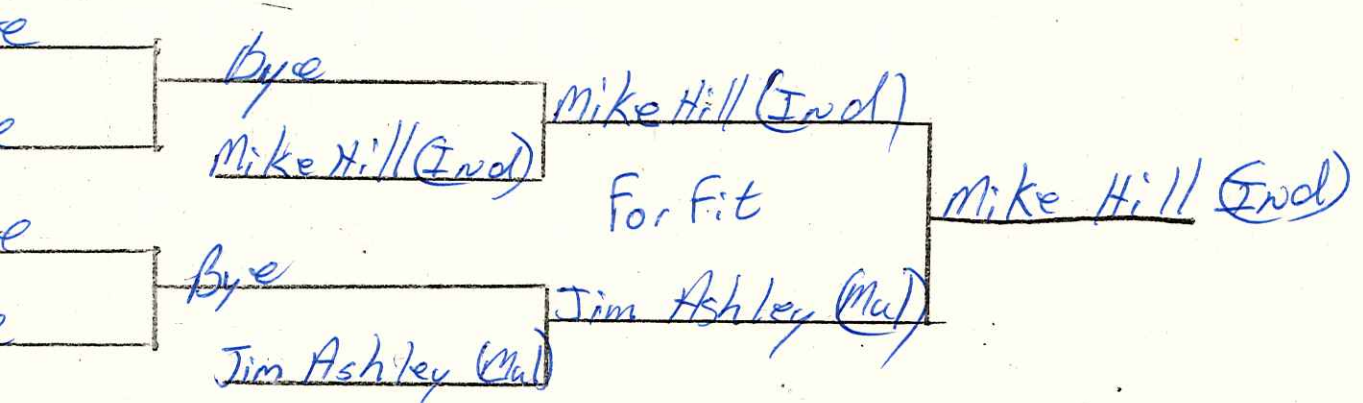 Bye
Mike Hill (Ind)
Bye
Jim Ashley (Mul)
Mike Hill (Ind)
For Fit
Jim Ashley (Mul)
Mike Hill (Ind)